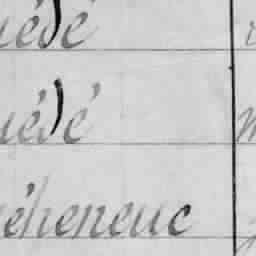 uédé
uédé
éheneuc